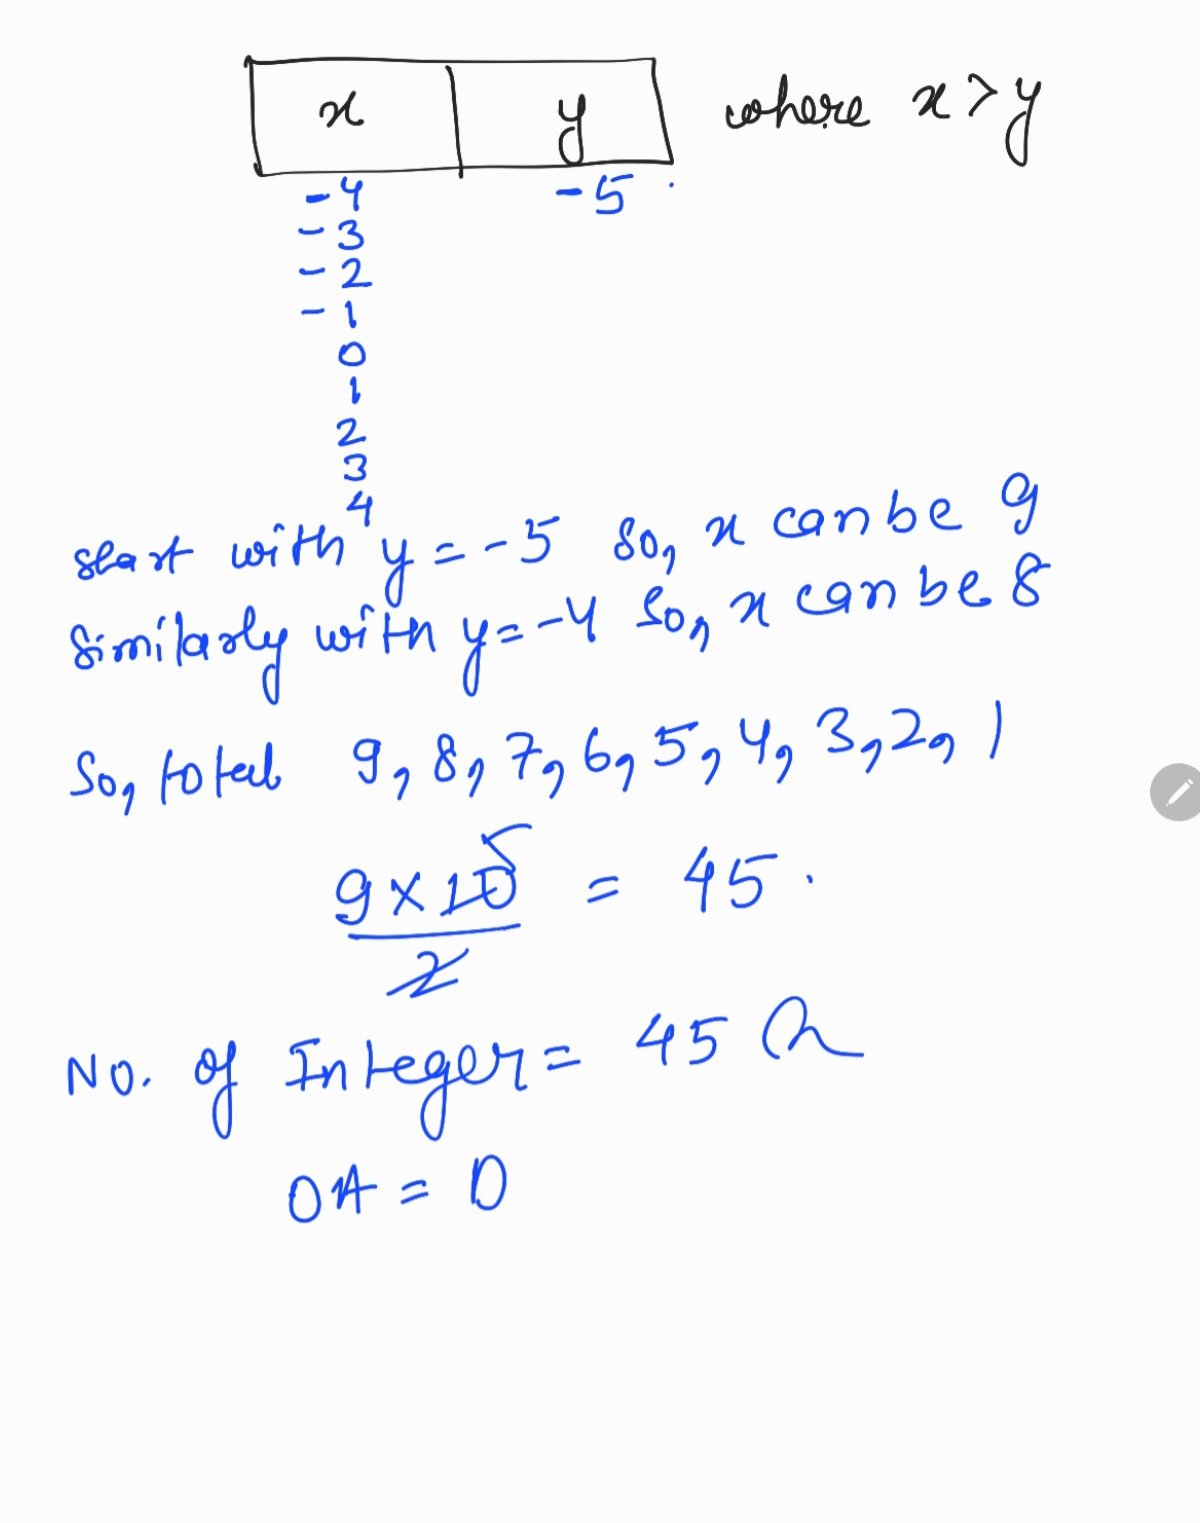 x y where x>y
-4 -5
-3
-2
-1
0
1
2
3
4
start with y = -5 so, x can be 9
Similarly with y = -4 So, x can be 8
So, total 9, 8, 7, 6, 5, 4, 3, 2, 1
9 × 10 5 = 45.
2
No. of Integer = 45
OA = D